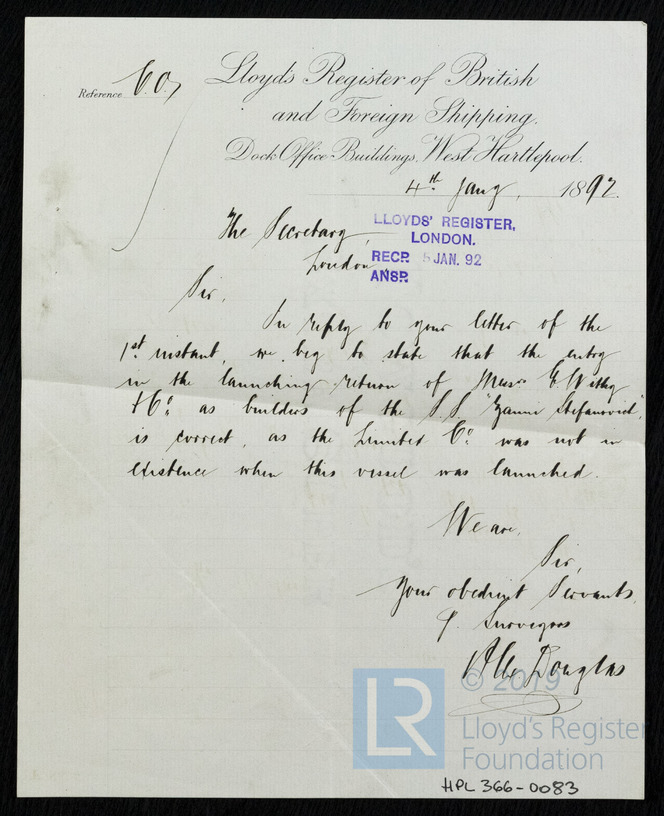 Reference 60,
Lloyd's Register of British
and Foreign Shipping.
Dock Office Buildings, West Hartlepool.
4th Jany, 1892.
The Secretary,
London.
LLOYDS' REGISTER,
LONDON.
RECD. 5 JAN. 92
ANSD.
Sir,
In reply to your letter of the
1st instant, we beg to state that the entry
in the launching return of Messrs E. Withy
& Co. as builders of the S.S. "Yanni Stefanovich",
is correct, as the Limited Co. was not in
existence when this vessel was launched.
We are,
Sir,
Your obedient Servants,
Surveyors
Douglas
© 2019
LR
Lloyd's Register
Foundation
HPL 366-0083